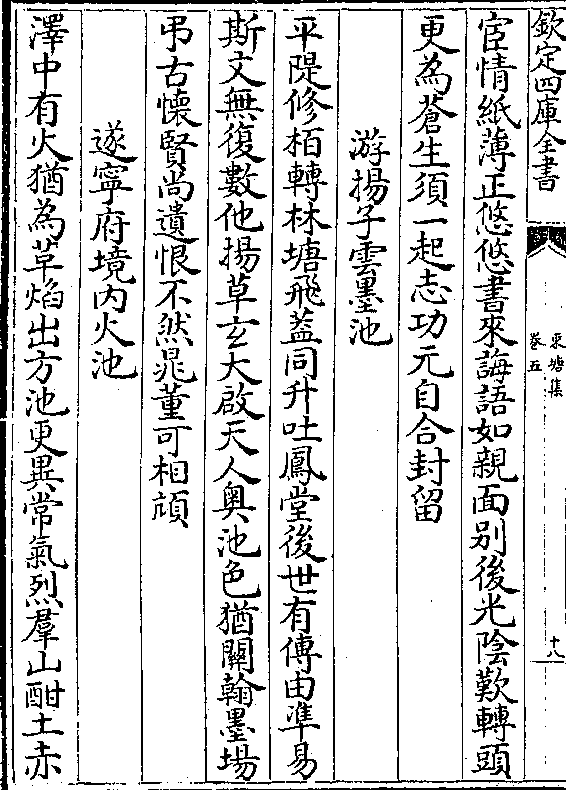 欽定四庫全書
東塘集
卷五
十八
宦情紙薄正悠悠書來誨語如親面别後光陰歎轉頭
更為蒼生須一起志功元自合封留
游揚子雲墨池
平隄修栢轉林塘飛葢同升吐鳳堂後世有傳由凖易
斯文無復數他揚草𤣥大啟天人奥池色猶關翰墨場
弔古懐賢尚遺恨不然晁董可相頏
遂寧府境内火池
澤中有火猶為草焰出方池更異常氣烈羣山酣土赤